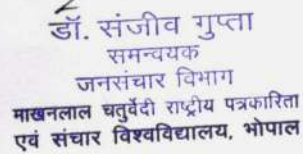 डॉ. संजीव गुप्ता
समन्वयक
जनसंचार विभाग
माखनलाल चतुर्वेदी राष्ट्रीय पत्रकारिता
एवं संचार विश्वविद्यालय, भोपाल